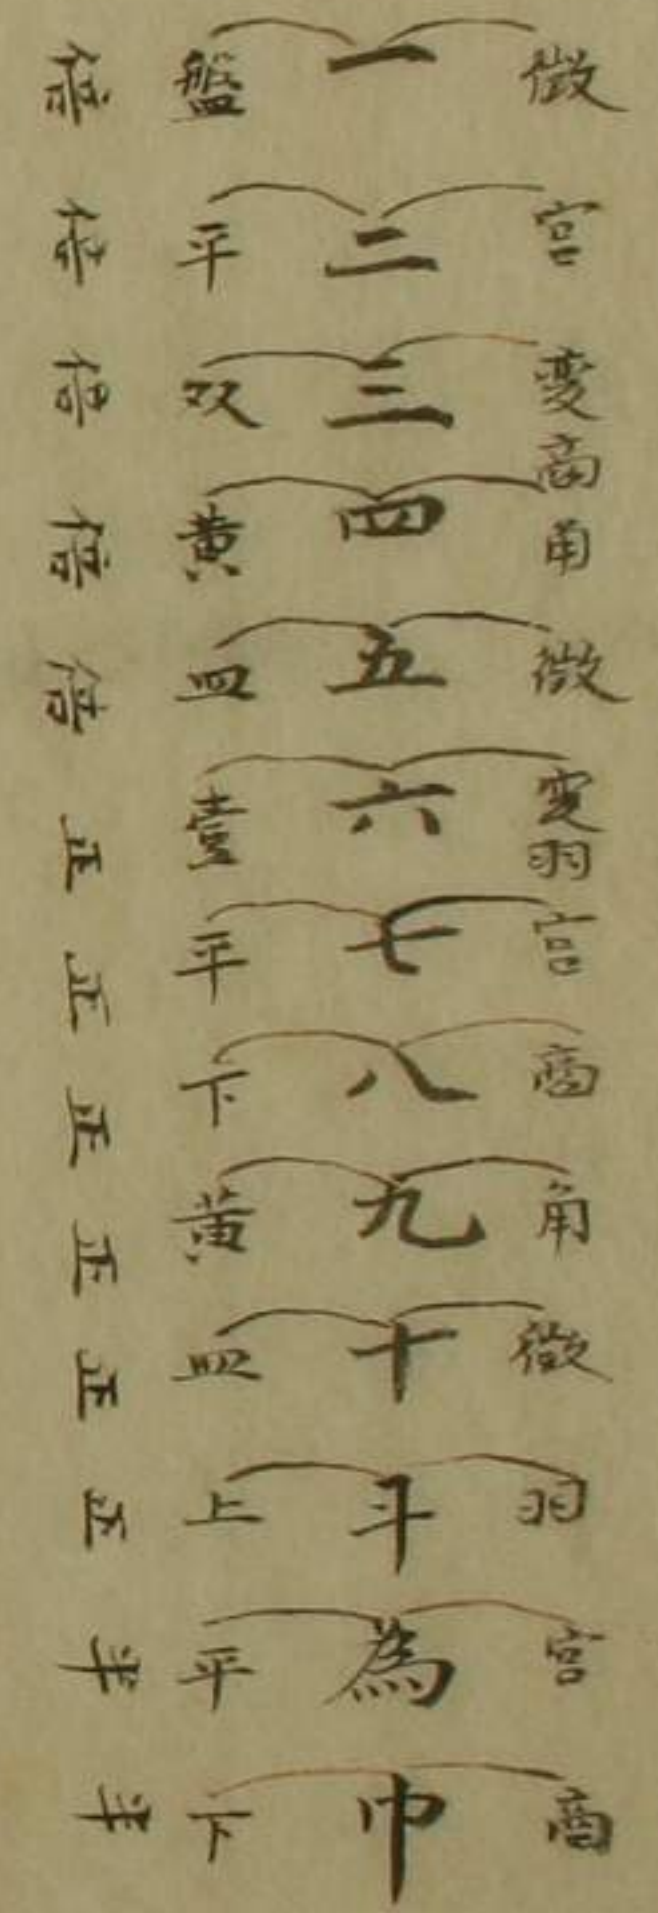 徴宮變商角徴変羽宮商角徴羽宮商
一二三四五六七八九十斗為巾
盤平双黄皿壹平下黄皿上平下
倍倍倍倍倍正正正正正正半半